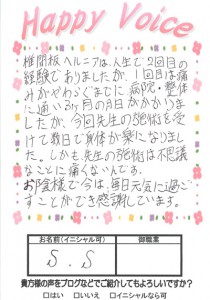 Happy Voice
椎間板ヘルニアは人生で2回目の
経験でありましたが、1回目は痛
みがやわらぐまでに病院・整体
に通い3ヶ月の月日がかかりま
したが、今回先生の施術を受
けて数日で身体が楽になりまし
た。しかも先生の施術は不思議
なことに痛くないんです。
お陰様で今は、毎日元気に過ご
すことができ感謝しています。
お名前(イニシャル可)
御職業
S.S
貴方様の声をブログなどでご紹介してもよろしいですか?
□はい □いいえ □イニシャルなら可